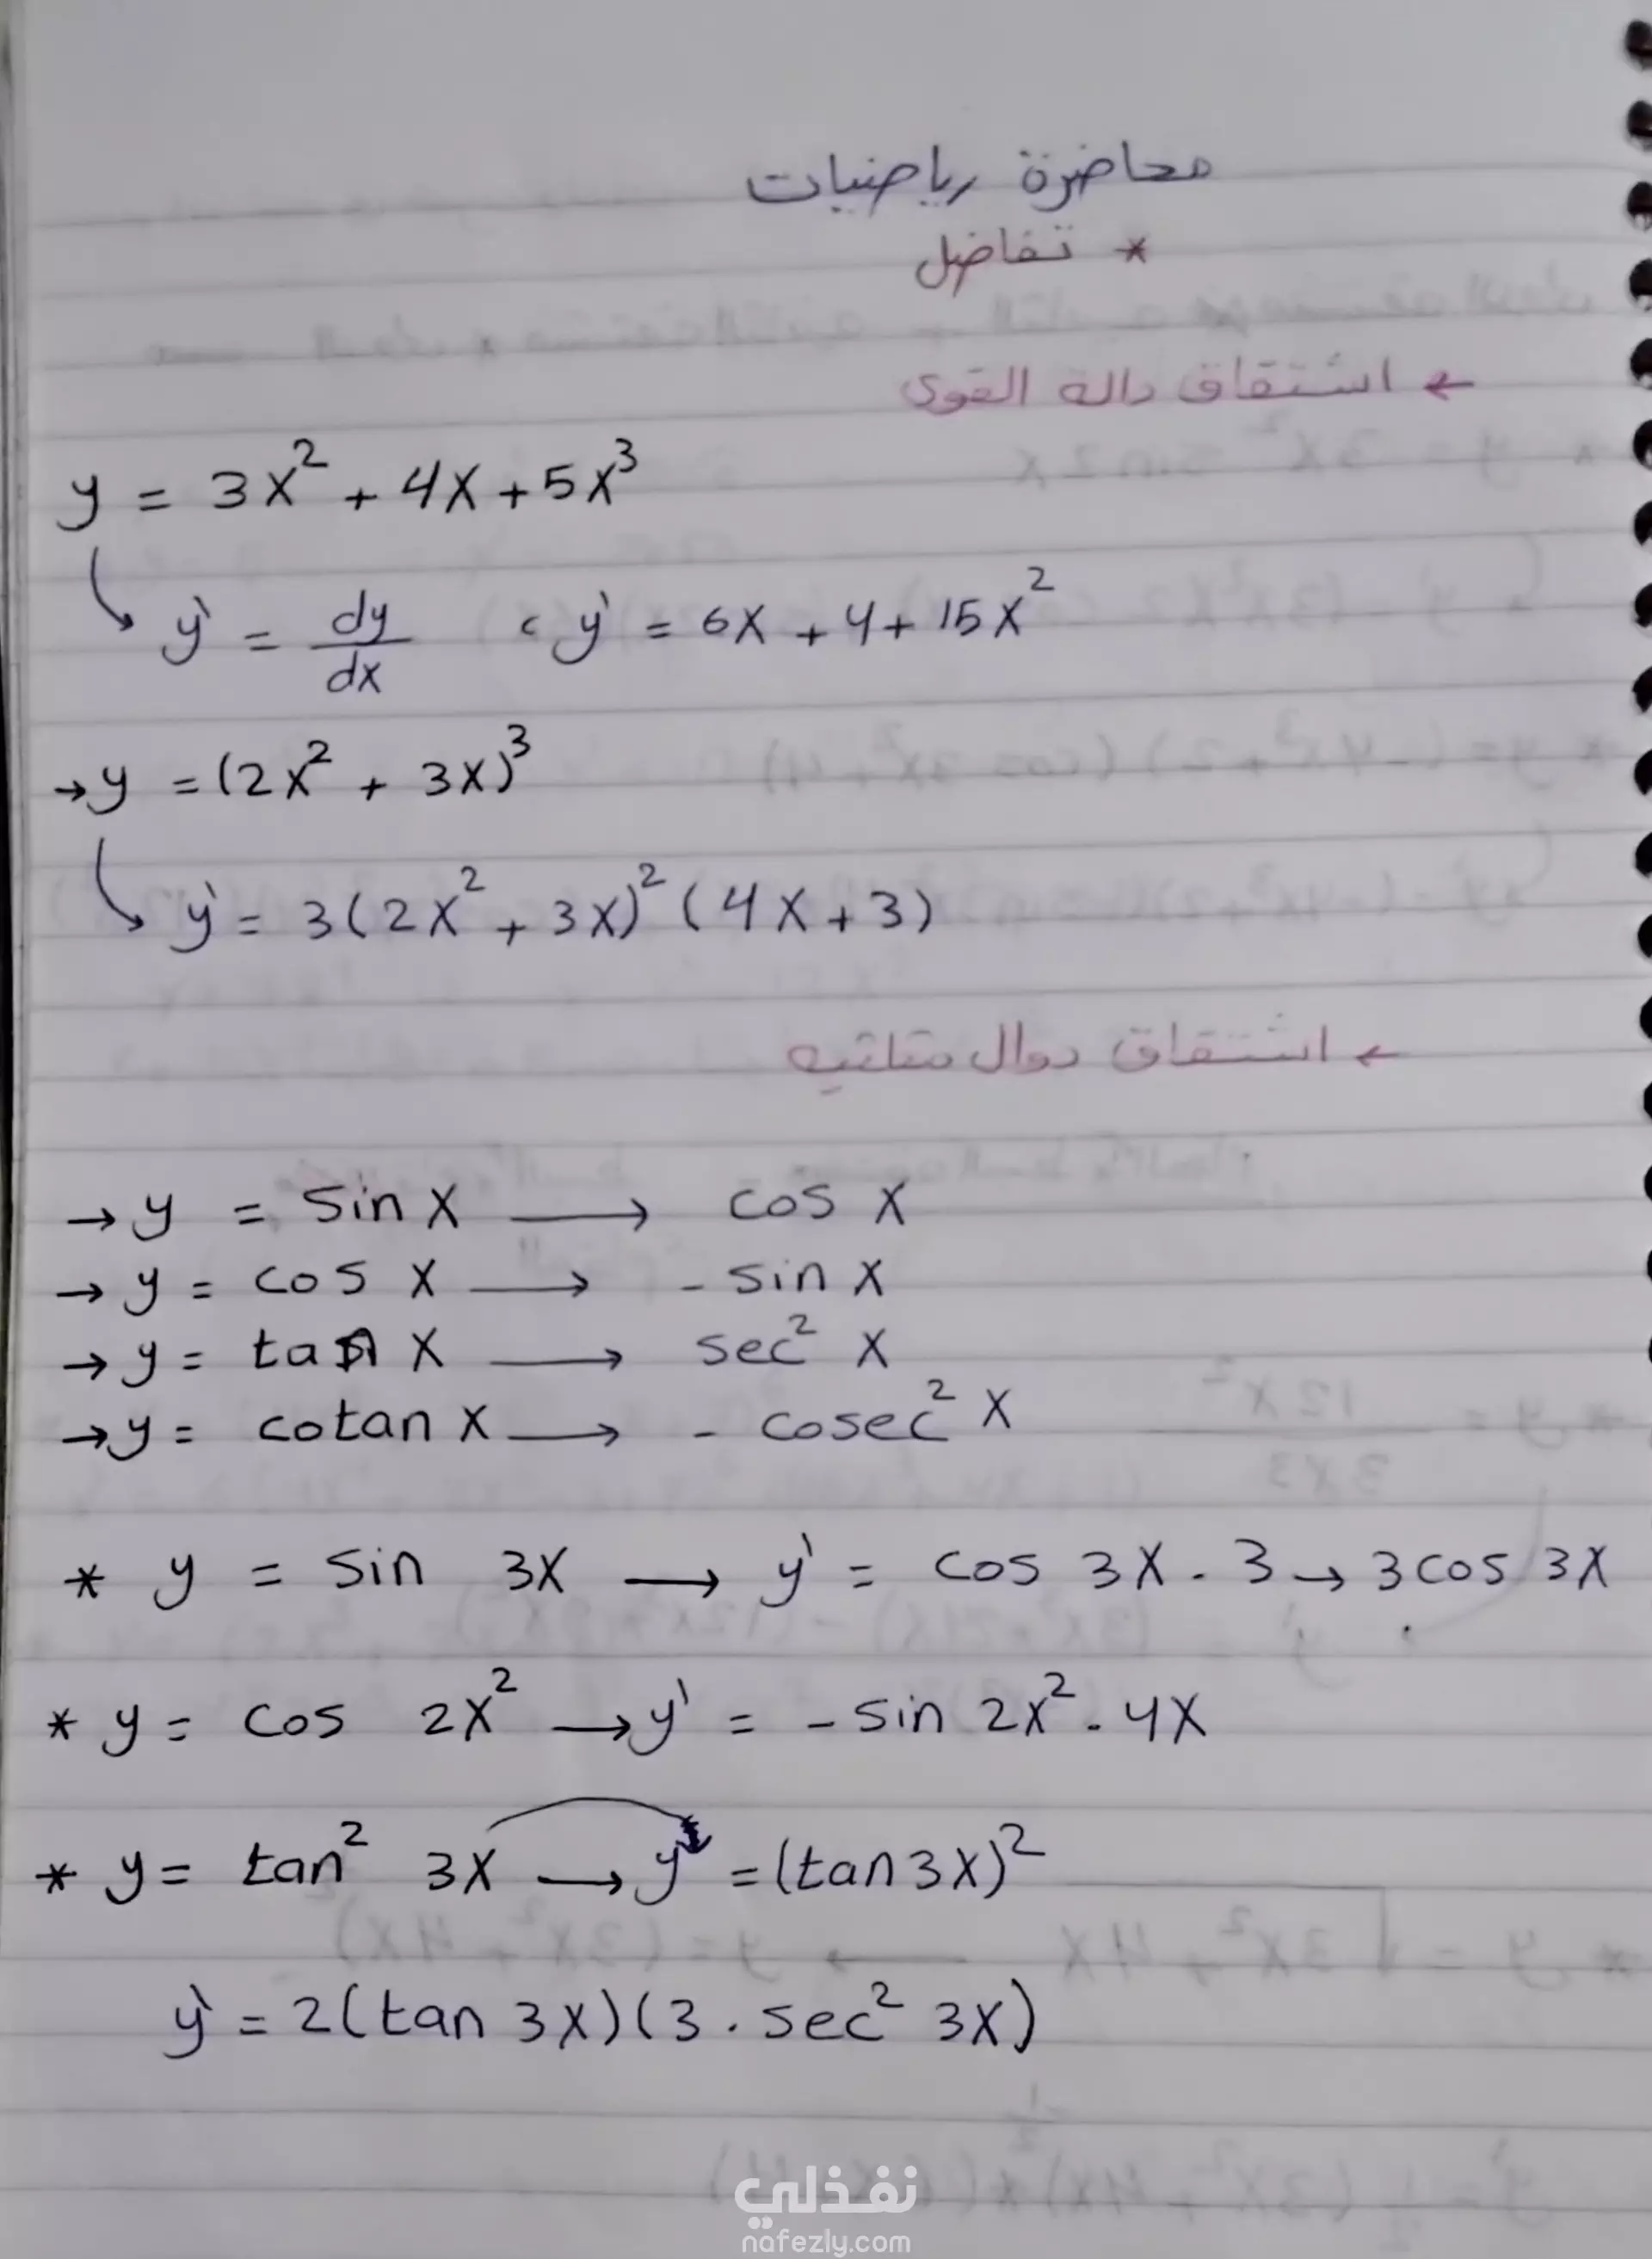 محاضرة رياضيات
* تفاضل
← اشتقاق دالة القوى
y = 3x² + 4x + 5x³
y' = dy/dx ، y' = 6x + 4 + 15x²
→ y = (2x² + 3x)³
y' = 3(2x² + 3x)² (4x + 3)
← اشتقاق دوال مثلثيه
→ y = sin x ⟶ cos x
→ y = cos x ⟶ - sin x
→ y = tan x ⟶ sec² x
→ y = cotan x ⟶ - cosec² x
* y = sin 3x ⟶ y' = cos 3x . 3 → 3 cos 3x
* y = cos 2x² ⟶ y' = - sin 2x² . 4x
* y = tan² 3x ⟶ y = (tan 3x)²
y' = 2(tan 3x)(3 . sec² 3x)
نفذلي
nafezly.com